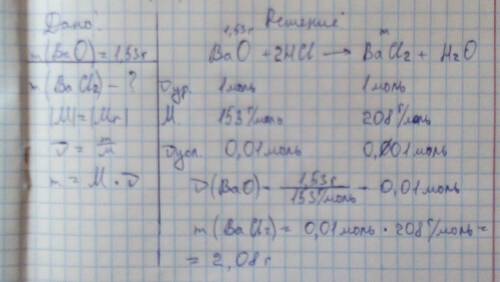 Дано:
m(BaO) = 1,53г
m(BaCl₂) - ?
|M| = |Mr|
ν = m/M
m = M · ν
Решение:
1,53г m
BaO + 2HCl → BaCl₂ + H₂O
νур. 1моль 1моль
M 153г/моль 208г/моль
νусл. 0,01моль 0,01моль
ν(BaO) = 1,53г/153г/моль = 0,01моль
m(BaCl₂) = 0,01моль · 208г/моль =
= 2,08г